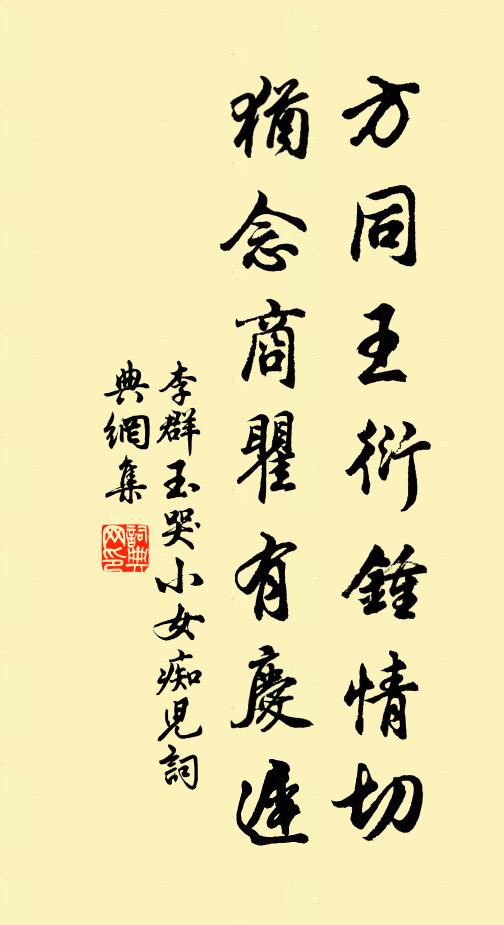 方同王衍鍾情切
猶念商瞿有慶遲
李群玉哭小女痴兒詞
典網集
詞典
网印